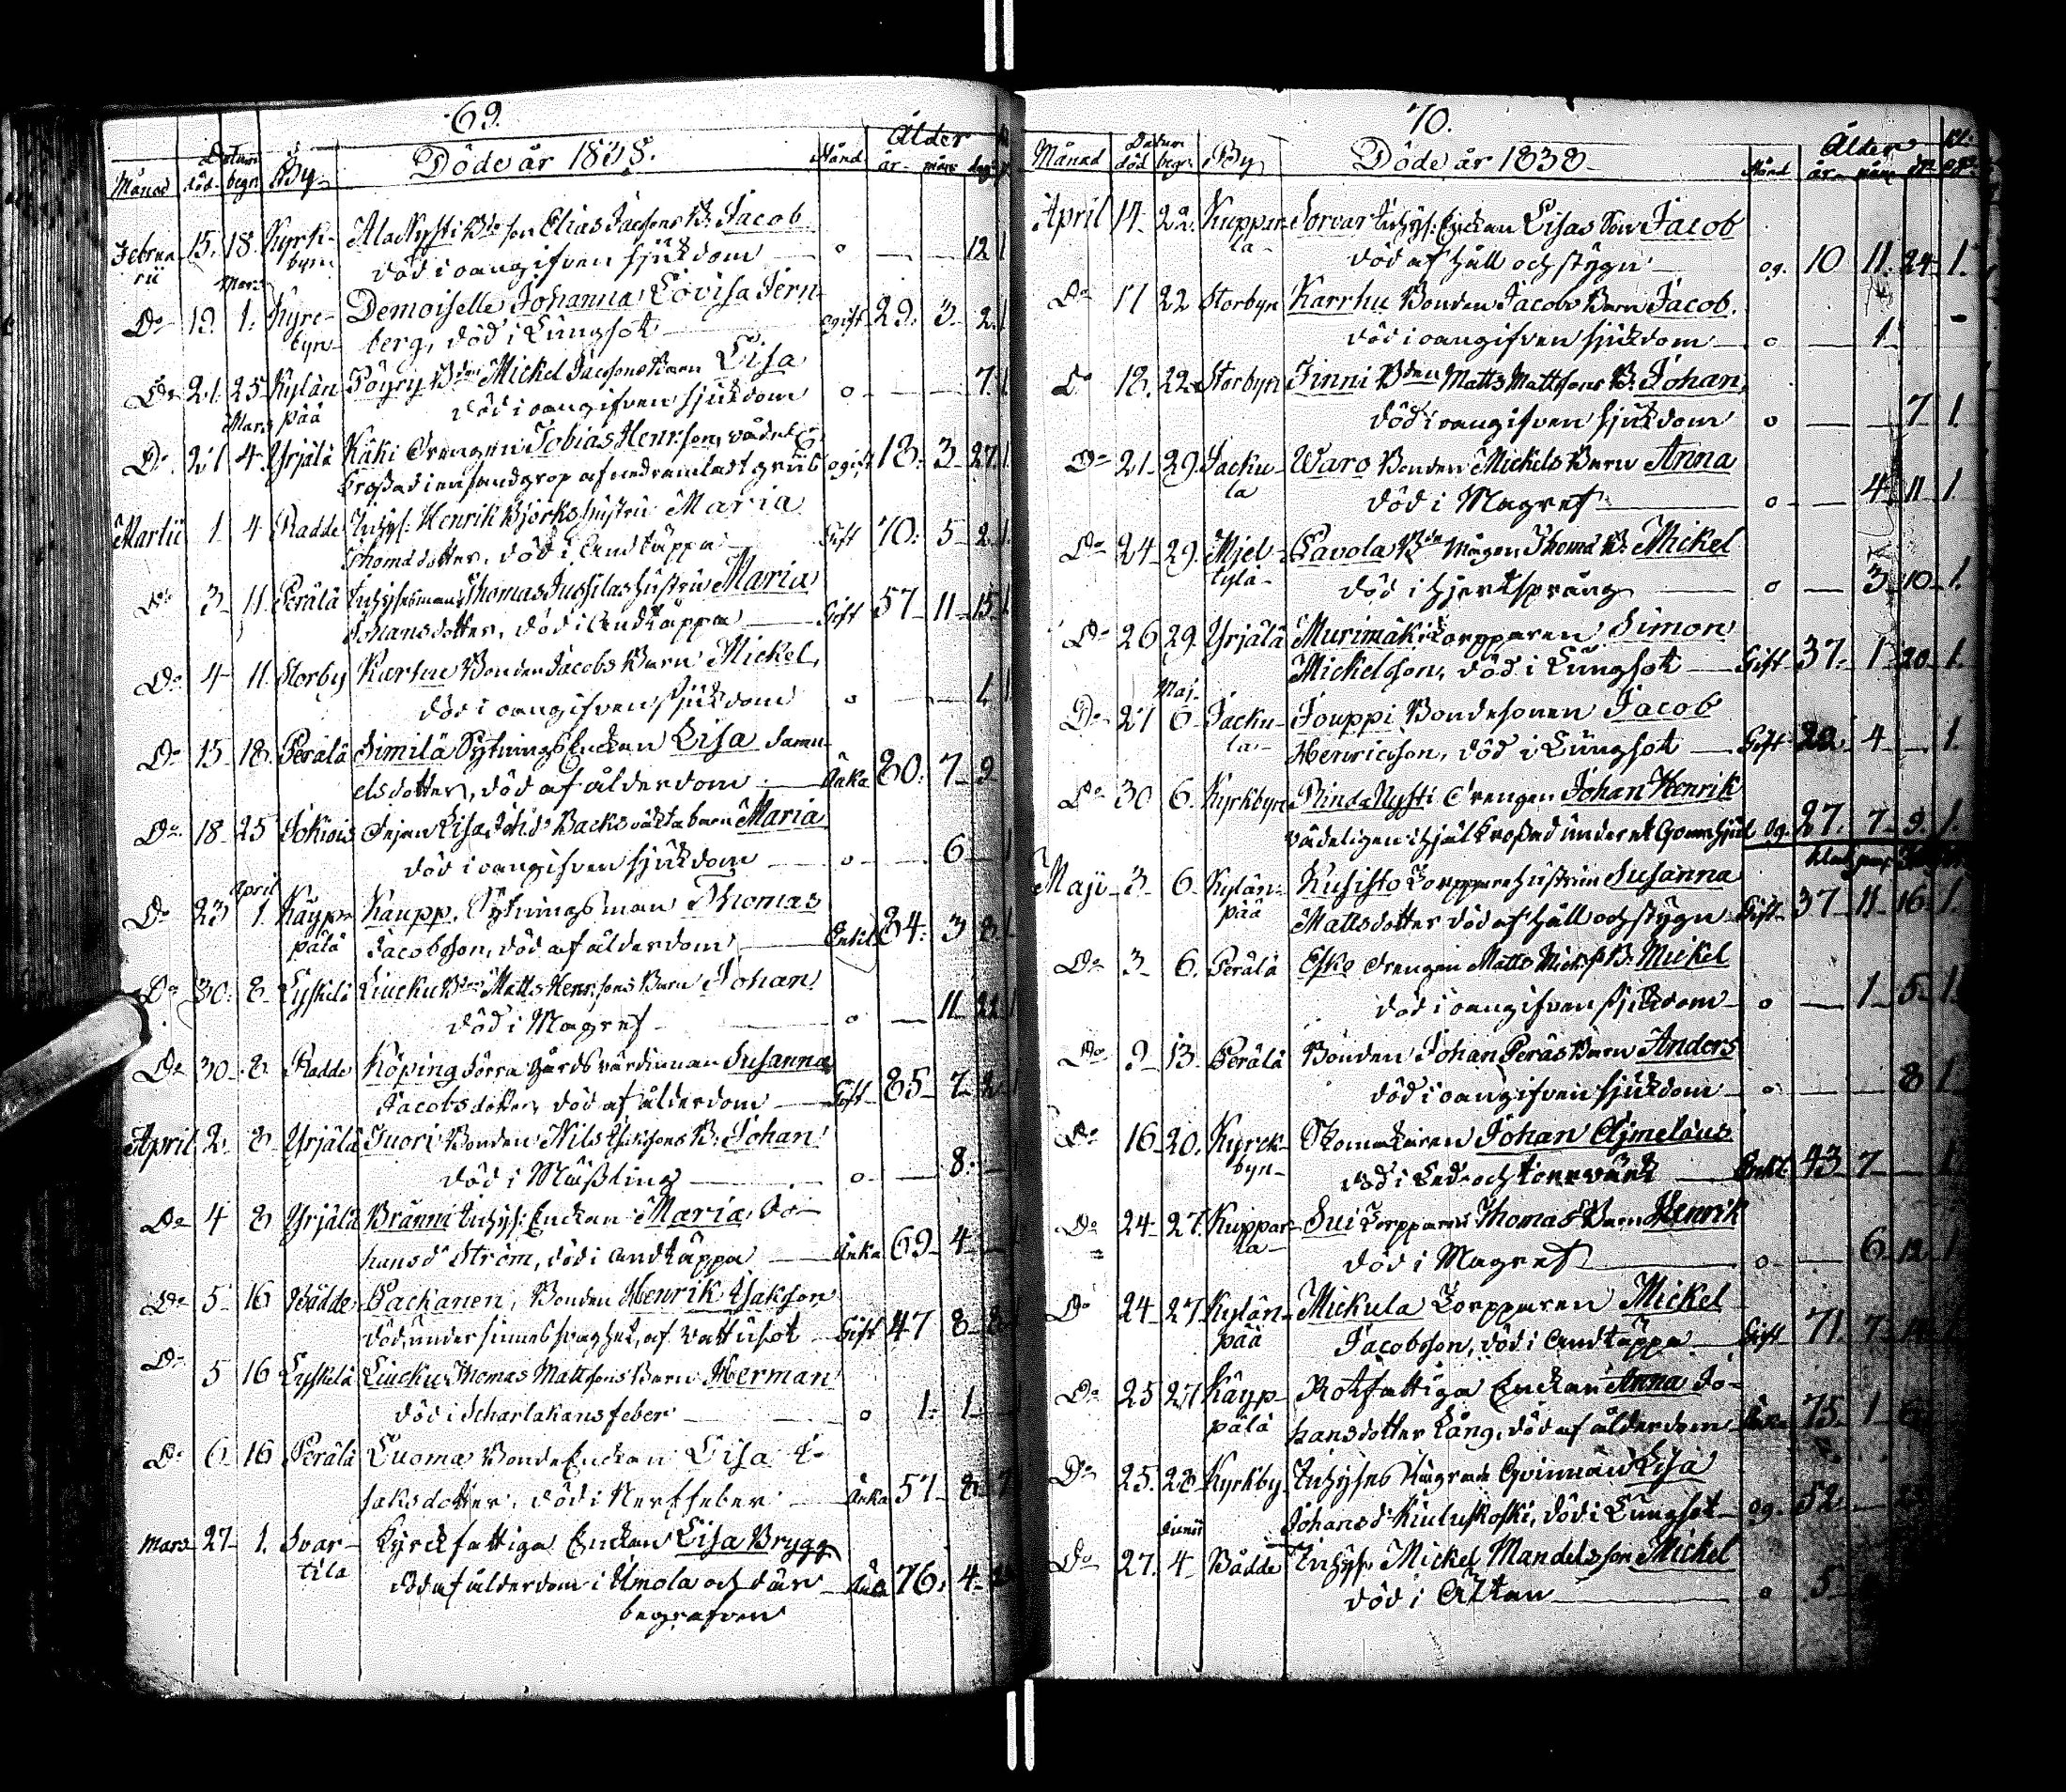 69.
Månad död begr. By Döde år 1838. Stånd Ålder år mån dag
Februarii 15. 18. Kyrkbyn AlaNysti Bdeson Elias Jacsons B. Jacob
död i oangifven sjukdom o — — 12 1
Mars
Do 19. 1. Kyrcbyn Demoiselle Johanna Lovisa Jernberg,
död i Lungsot ogift 29. 3 2. 1
Do 21. 25 Kylänpää Pöyry Bden Mickel Jacsons Barn Lisa
död i oangifven sjukdom o — — 7. 1
Mars
Do 21 4. Yrjälä Käki Drengen Tobias Henr.son,
Krossad i en sandgrop af nedramladt grus ogift 18. 3 27. 1.
Martii 1. 4 Radde Inhys. Henrik Björks hustru Maria
Thomasdotter, död i Andtäppa Gift 70. 5 2. 1.
Do 3 11. Perälä Inhysesman Thomas Jussilas hustru Maria
Johansdotter, död i Andtäppa Gift 57 11 15 1.
Do 4 11. Storby Karhu Bonden Jacobs Barn Mickel,
död i oangifven sjukdom o — — 1 1
Do 15 18. Perälä Similä SytningsEnckan Lisa Samuelsdotter,
död af ålderdom Änka 80. 7 9
Do 18 25 Jokiois Pejan Lisa Joh.ds Backs oäkta barn Maria
död i oangifven sjukdom o — 6 — 1
April
Do 23 1. Käyppälä Kaupp. Sytningsman Thomas
Jacobsson, död af ålderdom Enkl 84. 3 8. 1
Do 30. 8. Lyskilä Liucku Bden Matts Henr.sons Barn Johan
död i Magref o — 11 22 1
Do 30. 8 Radde Köping Förra Gårdsvärdinnan Susanna
Jacobsdotter, död af ålderdom Gift 85 7 2 1
April 2. 8 Yrjälä Juori Bonden Nils Isaksons B. Johan
död i Mässling o — 8. —
Do 4 8 Yrjälä Bränni Inhys. Enckan Maria Johansd.
Ström, död i Andtäppa Änka 69 4 —
Do 5 16 Bådde Packanen, Bonden Henrik Isakson
död, under sinnessvaghet, af Vattusot Gift 47 8 8
Do 5 16 Lyskilä Liucku Thomas Mattsons Barn Herman
död i Scharlakansfeber o 1. 1 —
Do 6 16 Perälä Luoma BondeEnckan Lisa Isaksdotter,
död i Nerffeber Änka 57 8 7
Mars 27 1. Svartila Kyrckfattiga Enckan Lisa Brygg
död af ålderdom i Umola och där Änka 76. 4
begrafven
70.
Månad Datum död begr. By Döde år 1838 Stånd Ålder år mån
April 14 22. Kupparla Sorvar Inhys. Enckan Lisas Son Jacob
död af håll och stygn og. 10 11. 24 1.
Do 17 22 Storbyn Karrhu Bonden Jacobs Barn Jacob.
död i oangifven sjukdom o — 1 —
Do 18. 22 Storbyn Finni Bden Matts Mattsons B. Johan,
död i oangifven sjukdom o — — 7 1.
Do 21 29. Jackula Waro Bonden Mickels Barn Anna
död i Magref o — 4 11 1
Do 24 29. Mieltylä Pavola Bde Mågen Thoms B. Mickel
död i Hjertsprång o — 3 10 1.
Do 26 29 Yrjälä Murimäki Torpparen Simon
Mickelsson, död i Lungsot Gift 37. 1 20 1.
Maj.
Do 27 6 Jackula Jouppi Bondesonen Jacob
Henricsson, död i Lungsot Gift 4 — 1.
Do 30 6. Kyrkbyn RindaNysti Drengen Johan Henrik
vådeligen ihjälkrossad under et Qvarnhjul og. 27. 7 9. 1.
Maji 3 6 Kylänpää Kusisto Torpparehustrun Susanna
Mattsdotter död af håll och stygn Gift 37 11 16 1.
Do 3 6. Perälä Esko Drengen Matts Mick.s B. Mickel
död i oangifven sjukdom o — 1 5 1.
Do 9 13. Perälä Bonden Johan Peräs Barn Anders
död i oangifven sjukdom o — — 8 1
Do 16 20. Kyrckbyn Skomakaren Johan Ajmelaus
död i Led- och torrvärk Enkl. 43 7 — 1
Do 24 27. Kupparla Sui Torpparens Thomas Barn Henrik
död i Magref o — 6 12 1
Do 24 27 Kylänpää Mickula Torpparen Mickel
Jacobsson, död i Andtäppa Gift 71. 7
Do 25 27 Käyppälä Rotfattiga Enckan Anna Johansdotter
Lång, död af ålderdom Änka 75. 1
Do 25. 28 Kyrkby Inhyses Qvinnan Lisa
Johansd. Kiuluskoski, död i Lungsot og. 52
Junii
Do 27. 4 Bådde Inhys. Mickel Mandelsson Mickel
död i Altan o 5